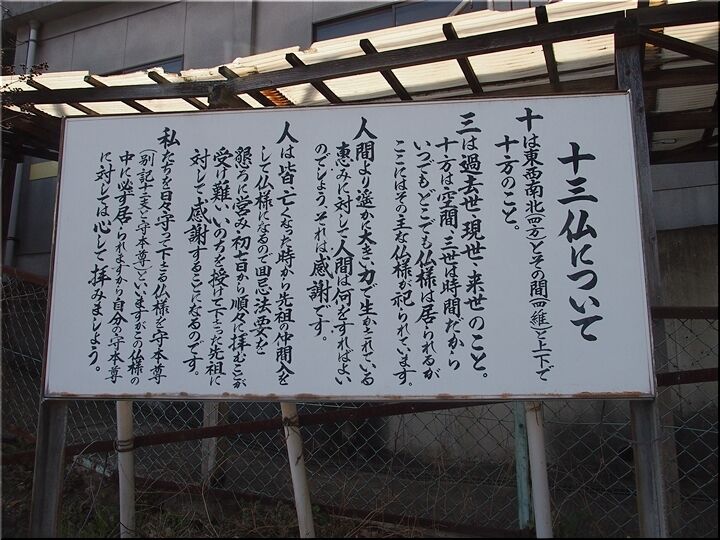 十三仏について
十は東西南北(四方)とその間(四維)と上下で
十方のこと。
三は過去世・現世・来世のこと。
十方は空間、三世は時間だから
いつでも、どこでも仏様は居られるが
ここにはその主な仏様が祀られています。
人間より遥かに大きい力で生かされている
恵みに対して人間は何をすればよい
のでしょう。それは感謝です。
人は皆、亡くなった時から先祖の仲間入を
して仏様になるので回忌法要を
懇ろに営み初七日から順々に拝むことが
受け難いいのちを授けて下さった先祖に
対して感謝することになるのです。
私たちを日々守って下さる仏様を守本尊
(別記十二支と守本尊)といいますがこの仏様の
中に必ず居られますから自分の守本尊
に対しては心して拝みましょう。